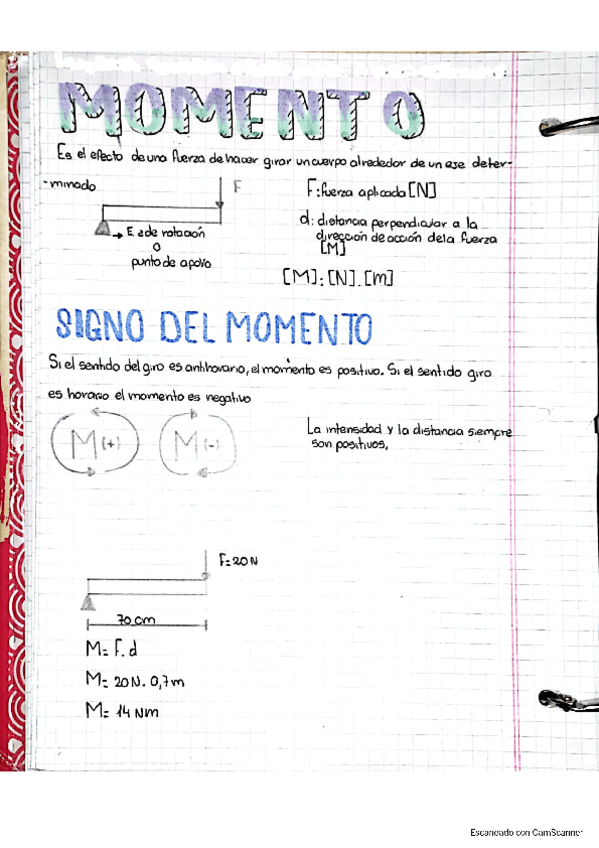 MOMENTO
Es el efecto de una fuerza de hacer girar un cuerpo alrededor de un eje deter-
-minado
F
F: fuerza aplicada [N]
d: distancia perpendicular a la
dirección de acción de la fuerza
[M]
→ Eje de rotación
o
punto de apoyo
[M]: [N].[m]
SIGNO DEL MOMENTO
Si el sentido del giro es antihorario, el momento es positivo. Si el sentido giro
es horario el momento es negativo
M (+)
M (-)
La intensidad y la distancia siempre
son positivos,
F=20N
70 cm
M= F. d
M= 20N. 0,7m
M= 14 Nm
Escaneado con CamScanner